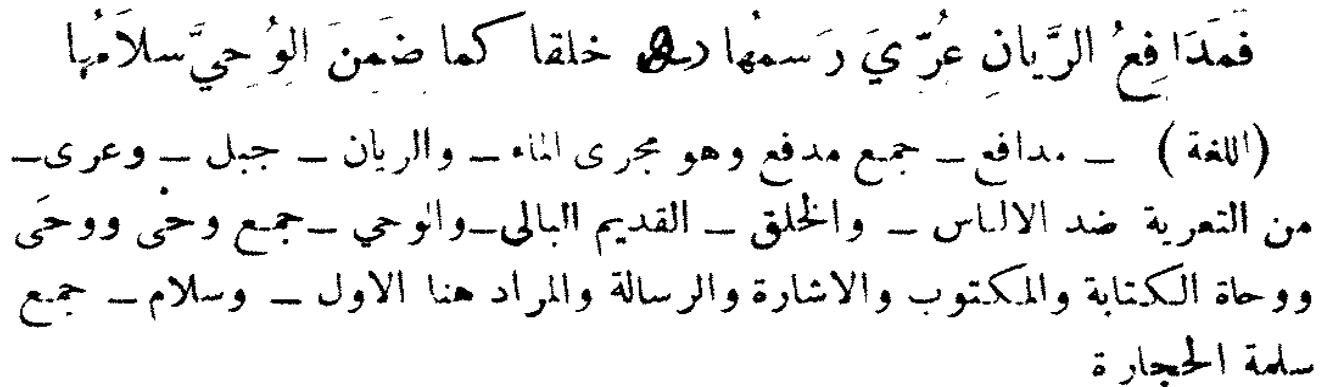 فَمَدَافِعُ الرَّيانِ عُرِّيَ رَسمُها خلقا كما ضَمِنَ الوُحِيَّ سلاَمُها
(اللغة) ــ مدافع ــ جمع مدفع وهو مجرى الماء ــ والريان ــ جبل ــ وعرى ــ
من التعرية ضد الالباس ــ والخلق ــ القديم البالى ــ والوحي ــ جمع وحْى ووحَى
ووحاة الكتابة والمكتوب والاشارة والرسالة والمراد هنا الاول ــ وسلام ــ جمع
سلمة الحجارة